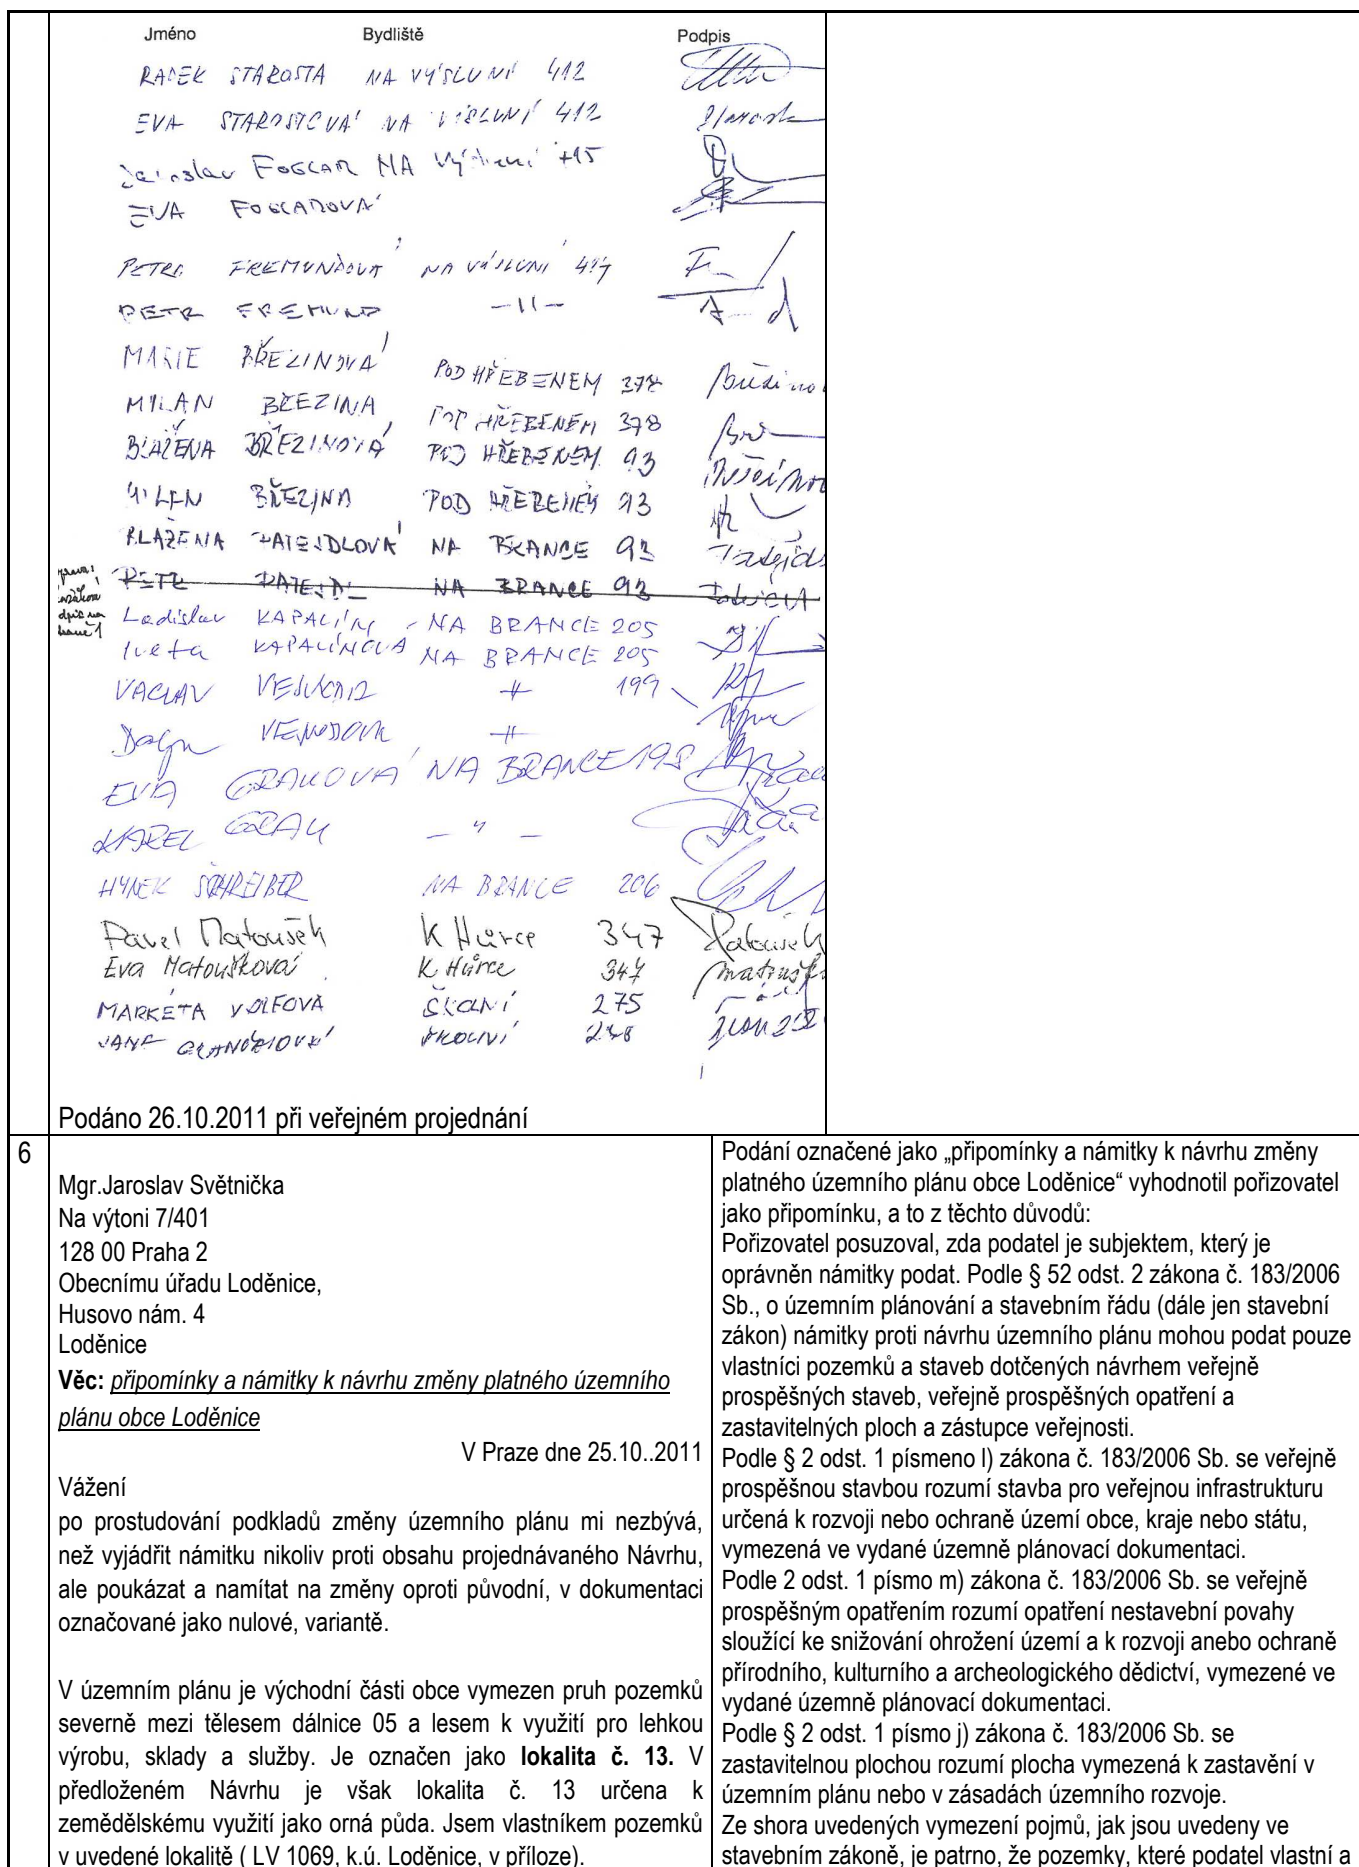 Jméno Bydliště Podpis
RADEK STAROSTA NA VÝSLUNÍ 412
EVA STAROSTOVÁ NA VÝSLUNÍ 412
Jaroslav FOGLAR NA Výsluní 415
EVA FOGLAROVÁ
PETRA FREMUNDOVÁ NA VÝSLUNÍ
PETR FREMUND -11-
MARIE BŘEZINOVÁ POD HŘEBENEM 378
MILAN BŘEZINA POD HŘEBENEM 378
BLAŽENA BŘEZINOVÁ POD HŘEBENEM 93
MILAN BŘEZINA POD HŘEBENEM 93
BLAŽENA NA BRANCE 93
PETR NA BRANCE 93
Ladislav KAPALÍN NA BRANCE 205
Iveta KAPALÍNOVÁ NA BRANCE 205
VACLAV 199
EVA GRAUOVÁ NA BRANCE 198
KAREL GRAU — " —
HYNEK SCHREIBER NA BRANCE 206
Pavel Matoušek K Hůrce 347
Eva Matoušková K Hůrce 347
MARKÉTA VOLFOVÁ ŠKOLNÍ 275
ŠKOLNÍ
Podáno 26.10.2011 při veřejném projednání
6
Mgr.Jaroslav Světnička
Na výtoni 7/401
128 00 Praha 2
Obecnímu úřadu Loděnice,
Husovo nám. 4
Loděnice
Věc: připomínky a námitky k návrhu změny platného územního
plánu obce Loděnice
V Praze dne 25.10..2011
Vážení
po prostudování podkladů změny územního plánu mi nezbývá,
než vyjádřit námitku nikoliv proti obsahu projednávaného Návrhu,
ale poukázat a namítat na změny oproti původní, v dokumentaci
označované jako nulové, variantě.
V územním plánu je východní části obce vymezen pruh pozemků
severně mezi tělesem dálnice 05 a lesem k využití pro lehkou
výrobu, sklady a služby. Je označen jako lokalita č. 13. V
předloženém Návrhu je však lokalita č. 13 určena k
zemědělskému využití jako orná půda. Jsem vlastníkem pozemků
v uvedené lokalitě ( LV 1069, k.ú. Loděnice, v příloze).
Podání označené jako „připomínky a námitky k návrhu změny
platného územního plánu obce Loděnice“ vyhodnotil pořizovatel
jako připomínku, a to z těchto důvodů:
Pořizovatel posuzoval, zda podatel je subjektem, který je
oprávněn námitky podat. Podle § 52 odst. 2 zákona č. 183/2006
Sb., o územním plánování a stavebním řádu (dále jen stavební
zákon) námitky proti návrhu územního plánu mohou podat pouze
vlastníci pozemků a staveb dotčených návrhem veřejně
prospěšných staveb, veřejně prospěšných opatření a
zastavitelných ploch a zástupce veřejnosti.
Podle § 2 odst. 1 písmeno l) zákona č. 183/2006 Sb. se veřejně
prospěšnou stavbou rozumí stavba pro veřejnou infrastrukturu
určená k rozvoji nebo ochraně území obce, kraje nebo státu,
vymezená ve vydané územně plánovací dokumentaci.
Podle 2 odst. 1 písmo m) zákona č. 183/2006 Sb. se veřejně
prospěšným opatřením rozumí opatření nestavební povahy
sloužící ke snižování ohrožení území a k rozvoji anebo ochraně
přírodního, kulturního a archeologického dědictví, vymezené ve
vydané územně plánovací dokumentaci.
Podle § 2 odst. 1 písmo j) zákona č. 183/2006 Sb. se
zastavitelnou plochou rozumí plocha vymezená k zastavění v
územním plánu nebo v zásadách územního rozvoje.
Ze shora uvedených vymezení pojmů, jak jsou uvedeny ve
stavebním zákoně, je patrno, že pozemky, které podatel vlastní a